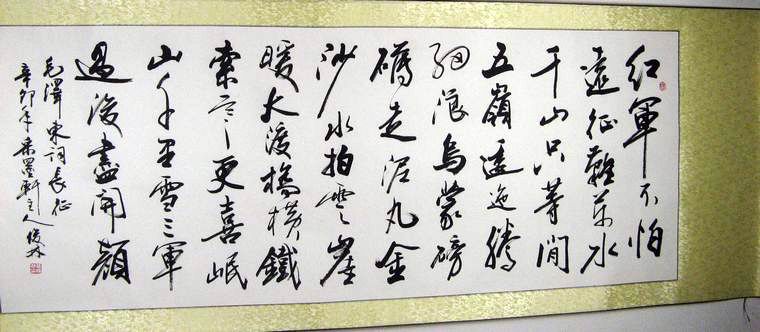 红軍不怕
遠征難萬水
千山只等閒
五嶺逶迤騰
細浪烏蒙磅
礴走泥丸金
沙水拍雲崖
暖大渡橋橫鐵
索寒更喜岷
山千里雪三軍
過後盡開顏
毛澤東詞長征
辛卯年墨軒主人俊林